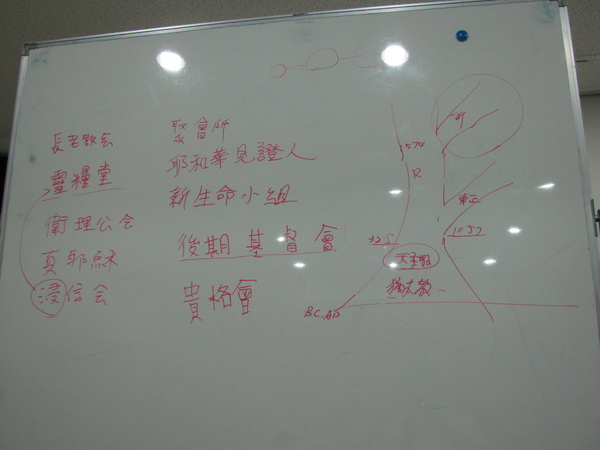 長老教会
靈糧堂
衛理公会
真耶穌
浸信会
聚會所
耶和華見證人
新生命小組
後期基督會
貴格會
R
325
1057
天主教
猶太教
B.C. AD